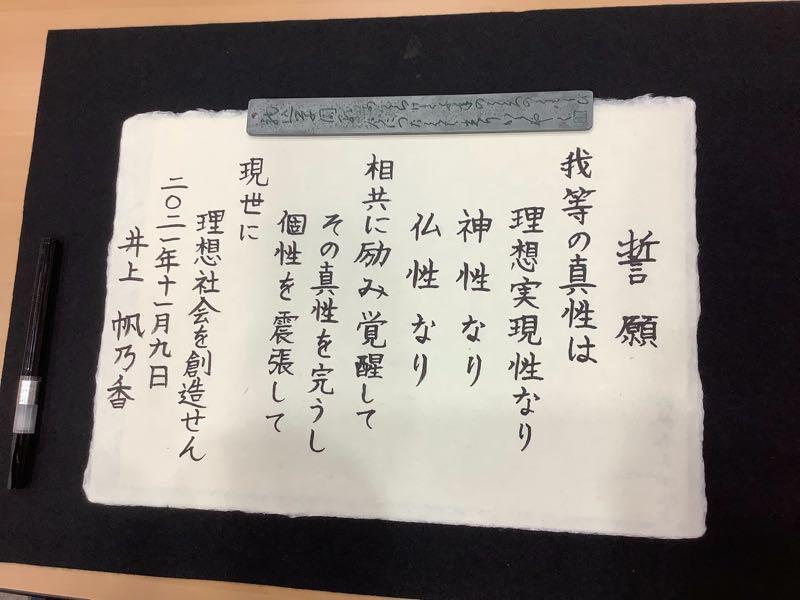 誓願
我等の真性は
理想実現性なり
神性なり
仏性なり
相共に励み覚醒して
その真性を完うし
個性を震張して
現世に
理想社会を創造せん
二〇二一年十一月九日
井上 帆乃香